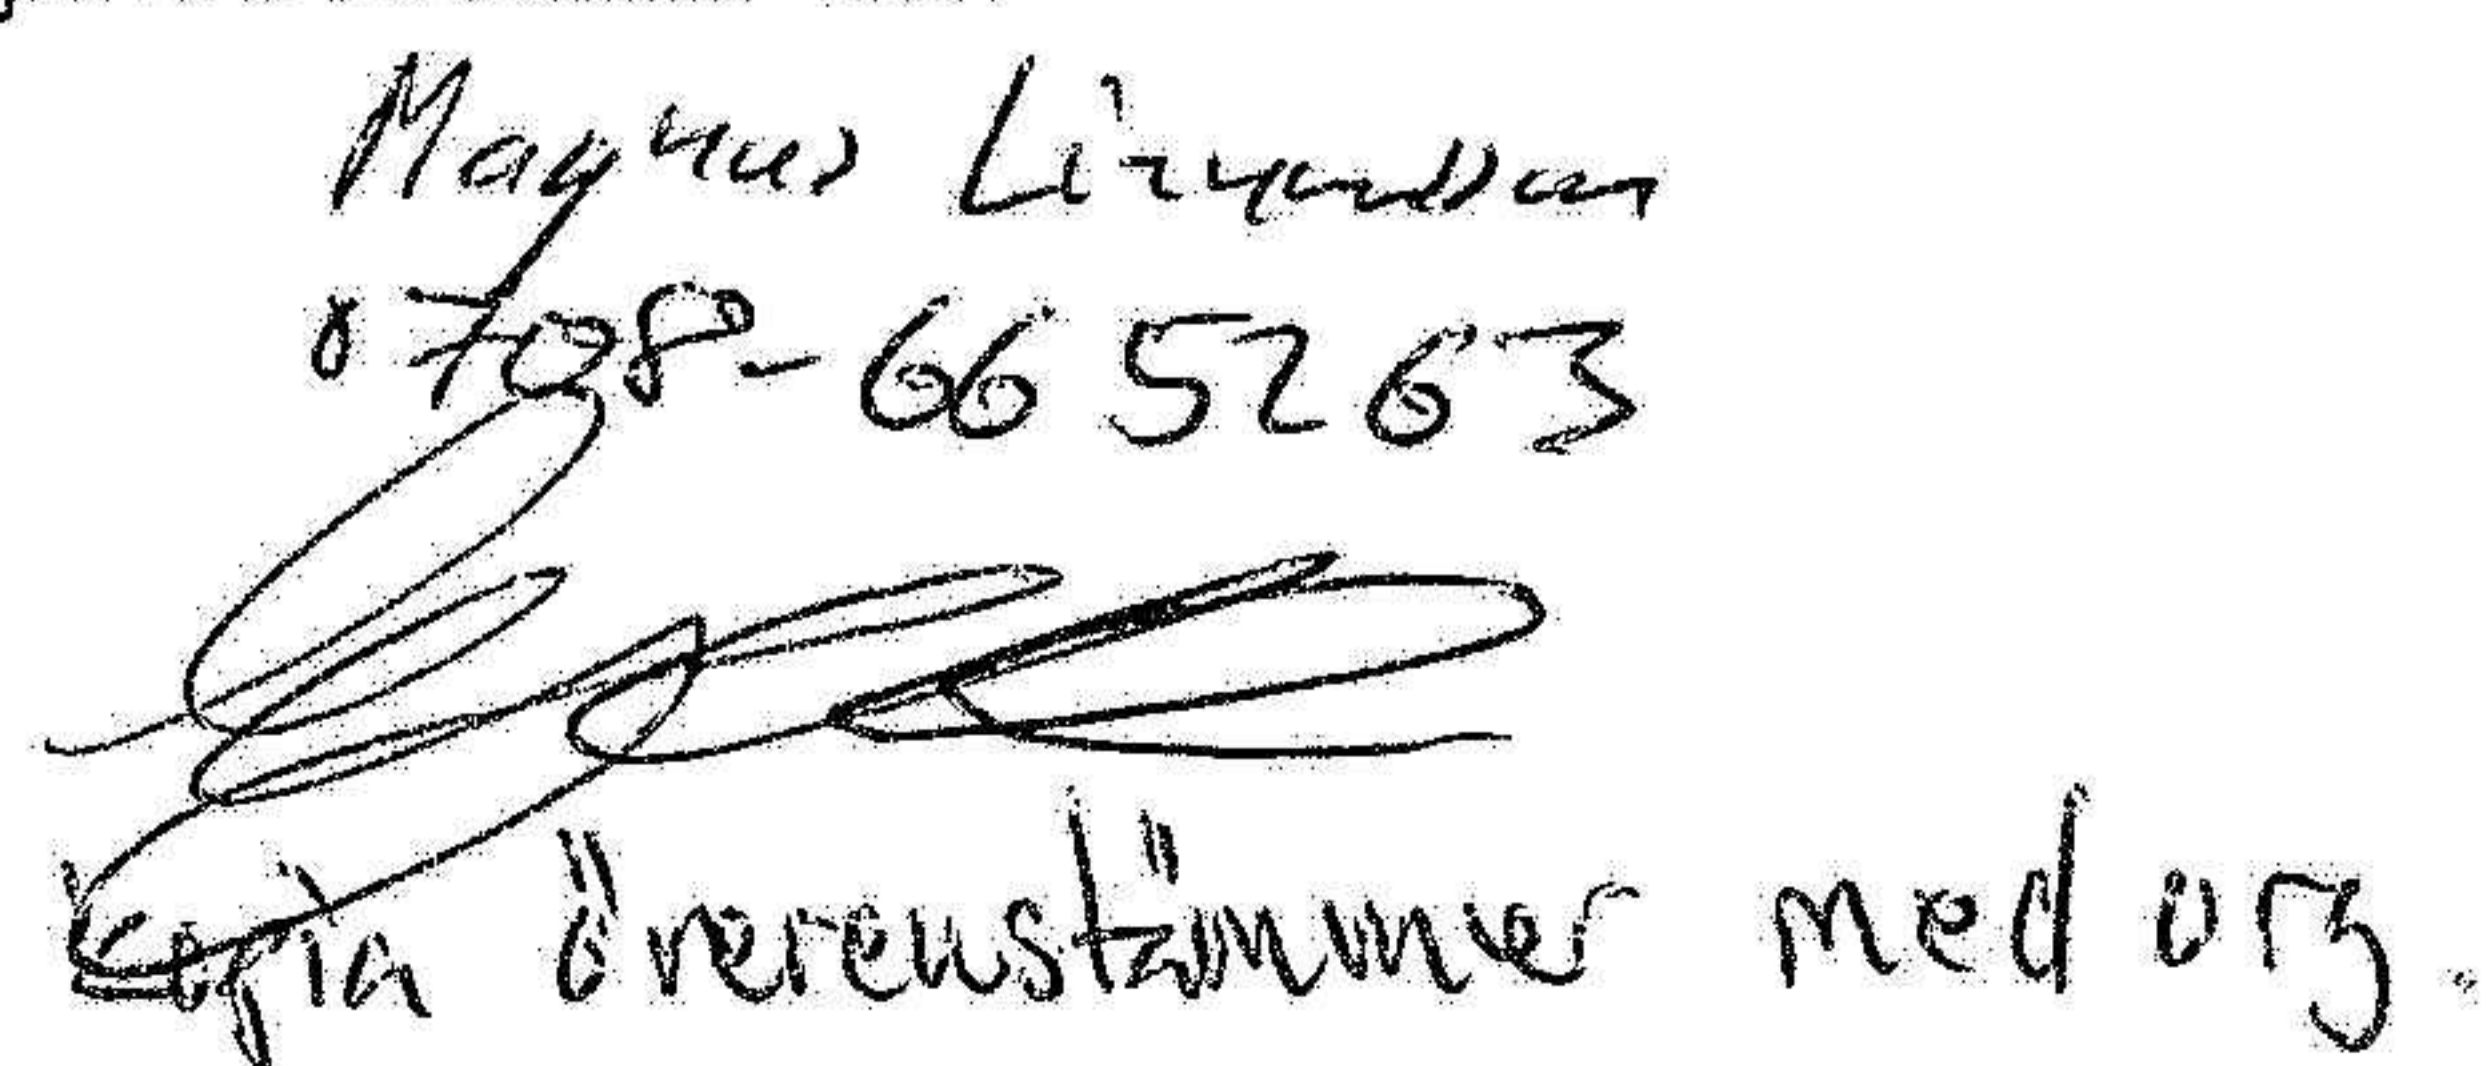 Magnus
0708-66 52 63
Kopia överenstämmer med org.